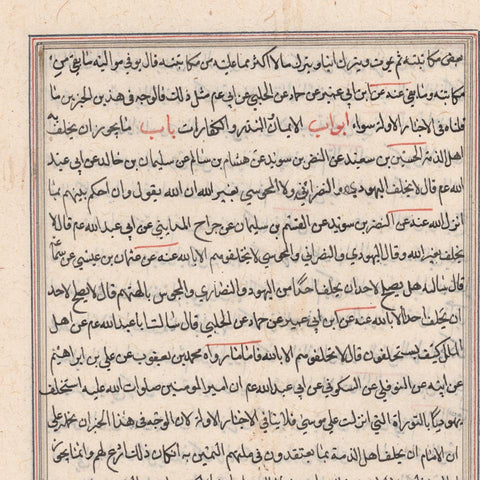 بعض مكاتبته ثم يموت ويترك ابنا ويترك مالا اكثر مما عليه من مكاتبته قال يوفى مواليه ما بقي من
مكاتبته وما بقي عنه عن ابن ابي عمير عن حماد عن الحلبي عن ابي عم مثل ذلك فالوجه في هذين الخبرين ما
قلناه في الاخبار الاولة سواء ابواب الايمان والنذور والكفارات باب ما يجوز ان يحلف به
اهل الذمة الحسين بن سعيد عن النضر بن سويد عن هشام بن سالم عن سليمان بن خالد عن ابي عبد
الله عم قال لا يحلف اليهودي ولا النصراني ولا المجوسي بغير الله ان الله يقول وان احكم بينهم بما
انزل الله عنه عن النضر بن سويد عن القسم بن سليمان عن جراح المدايني عن ابي عبد الله عم قال لا
يحلف بغير الله وقال اليهودي والنصراني والمجوسي لا تحلفوهم الا بالله عنه عن عثمان بن عيسى عن سماعة
قال سالته هل يصلح لاحد ان يحلف احدا من اليهود والنصارى والمجوس بالهتهم قال لا يصلح لاحد
ان يحلف احدا الا بالله عنه عن ابن ابي عمير عن حماد عن الحلبي قال سالت ابا عبد الله عم عن اهل
الملل كيف يستحلفون قال لا تحلفوهم الا بالله فاما ما رواه محمد بن يعقوب عن علي بن ابراهيم
عن ابيه عن النوفلي عن السكوني عن ابي عبد الله عم ان امير المومنين صلوات الله عليه استحلف
يهوديا بالتوراة التي انزلت على موسى فلا ينافي الاخبار الاولة لان الوجه في هذا الخبر ان نحمله على
ان الامام ان يحلف اهل الذمة بما يعتقدون في ملتهم اليمين به اذا كان ذلك اردع لهم وانما يجوز